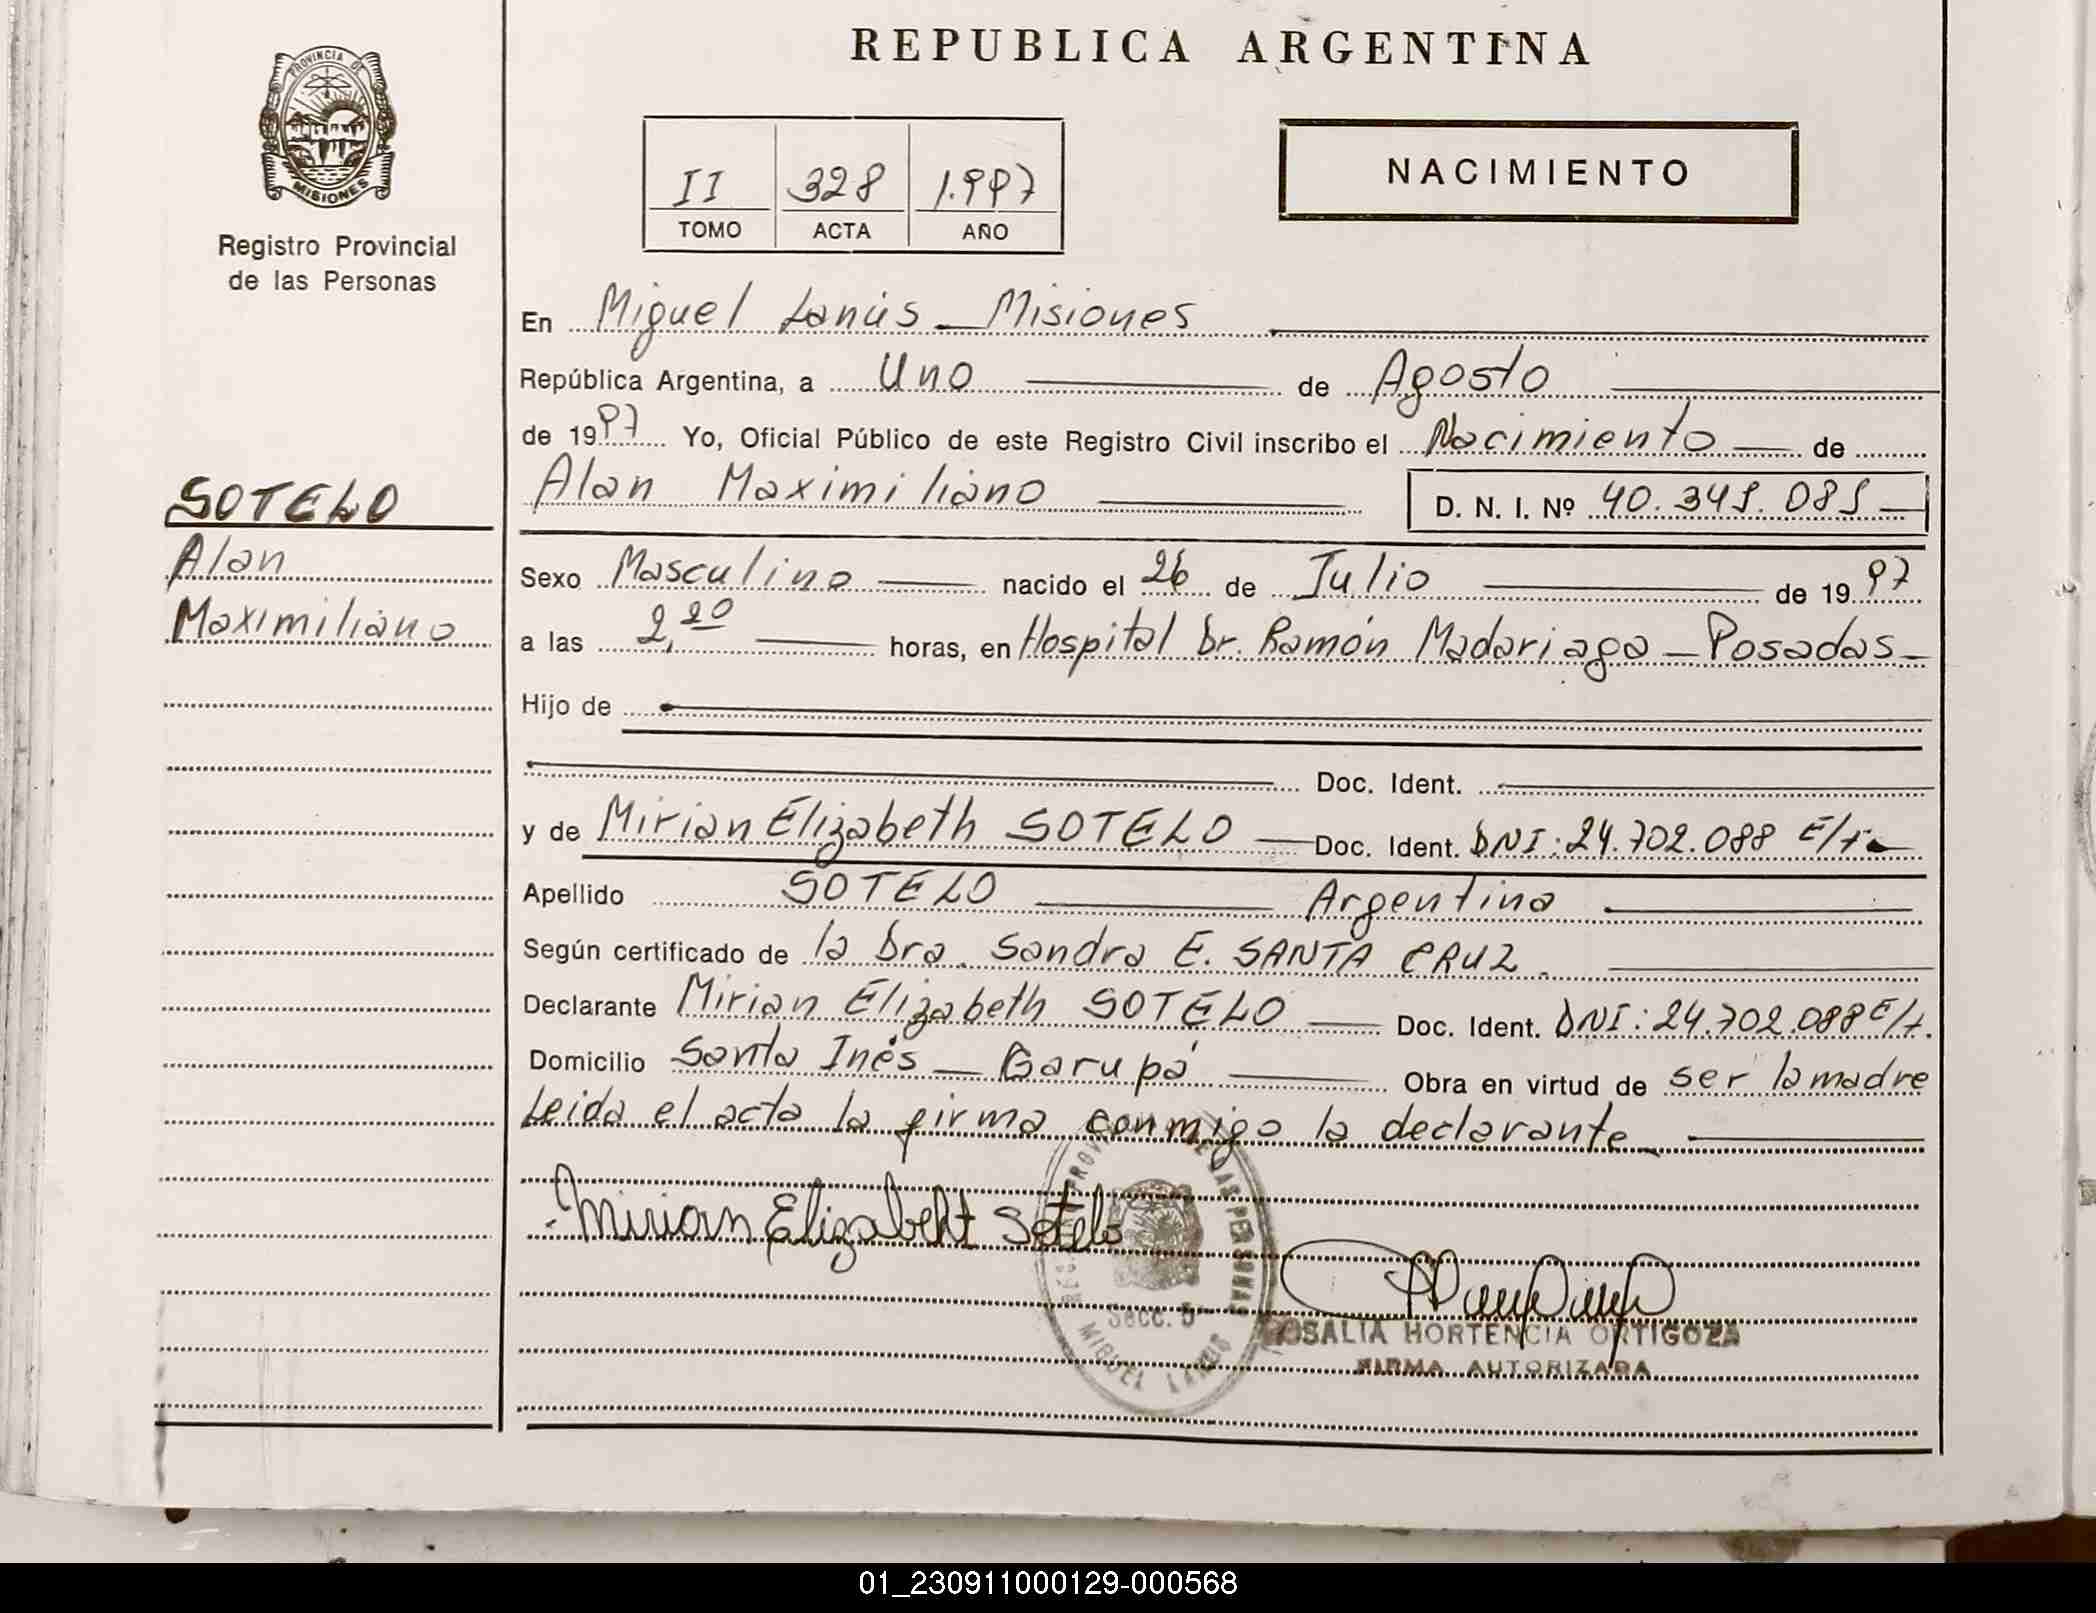 REPUBLICA ARGENTINA
PROVINCIA DE
MISIONES
Registro Provincial
de las Personas
II 328 1.997
TOMO ACTA AÑO
NACIMIENTO
En Miguel Lanús - Misiones
República Argentina, a Uno de Agosto
de 1997 Yo, Oficial Público de este Registro Civil inscribo el Nacimiento de
Alan Maximiliano D. N. I. Nº 40.345.085
SOTELO
Alan
Maximiliano
Sexo Masculino nacido el 26 de Julio de 1997
a las 2,20 horas, en Hospital Dr. Ramón Madariaga - Posadas -
Hijo de
Doc. Ident.
y de Mirian Elizabeth SOTELO Doc. Ident. DNI: 24.702.088 E/t.
Apellido SOTELO Argentina
Según certificado de la Dra. Sandra E. SANTA CRUZ.
Declarante Mirian Elizabeth SOTELO Doc. Ident. DNI: 24.702.088 E/t.
Domicilio Santa Inés - Garupá Obra en virtud de ser la madre
Leida el acta la firma conmigo la declarante
Mirian Elizabeht Sotelo
Secc. 5
MIGUEL LANUS
ROSALIA HORTENCIA ORTIGOZA
FIRMA AUTORIZADA
01_230911000129-000568